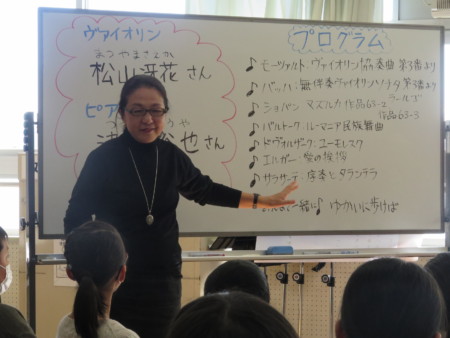 ヴァイオリン
まつやまさえか
松山冴花さん
ピア
也さん
プログラム
♪モーツァルト:ヴァイオリン協奏曲 第3番より
♪バッハ:無伴奏ヴァイオリンソナタ 第3番より
ラールゴ
♪ショパン:マズルカ作品63-2
作品63-3
♪バルトーク:ルーマニア民族舞曲
♪ドヴォルザーク:ユーモレスク
♪エルガー:愛の挨拶
♪サラサーテ:序奏とタランテラ
一緒に♪ ゆかいに歩けば